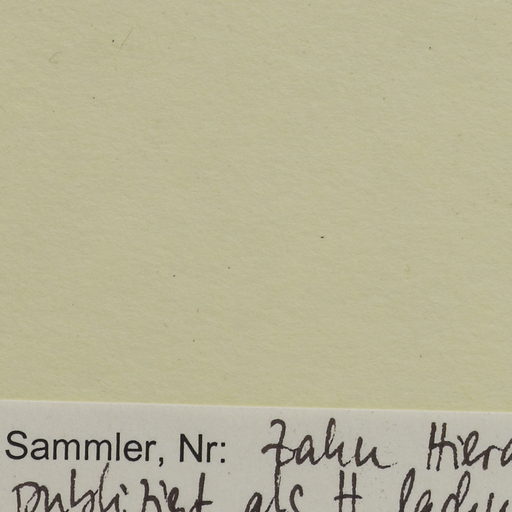 Sammler, Nr: Zahn Hiera
publiziert als H.